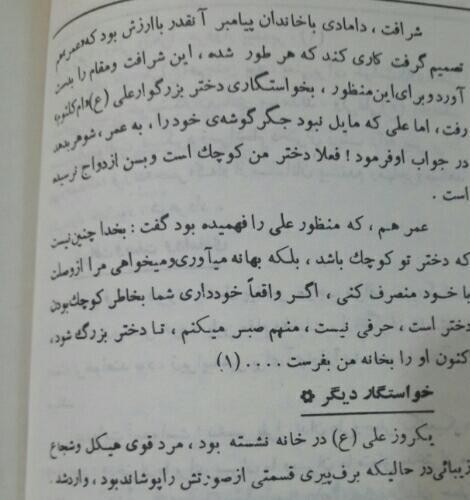 شرافت ، دامادی باخاندان پیامبر آنقدر باارزش بود که «عمر» هم
تصمیم گرفت کاری کند که هر طور شده ، این شرافت ومقام را بدست
آورد و برای این منظور ، بخواستگاری دختر بزرگوار علی (ع) «ام کلثوم»
رفت، اما علی که مایل نبود جگر گوشه‌ی خود را ، به عمر، شوهر بدهد
در جواب او فرمود ! فعلا دختر من کوچك است و بسن ازدواج نرسیده
است .
عمر هم، که منظور علی را فهمیده بود گفت : بخدا چنین نیست
که دختر تو کوچك باشد ، بلکه بهانه میآوری ومیخواهی مرا ازوصلت
با خود منصرف کنی ، اگر واقعاً خودداری شما بخاطر کوچك بودن
دختر است ، حرفی نیست ، منهم صبر میکنم ، تا دختر بزرگ شود،
اکنون او را بخانه من بفرست .... (۱)
خواستگار دیگر ✡
یکروز علی (ع) در خانه نشسته بود ، مرد قوی هیکل وشجاع
زیبائی در حالیکه برف پیری قسمتی از صورتش را پوشاند بود ، وارد شد .